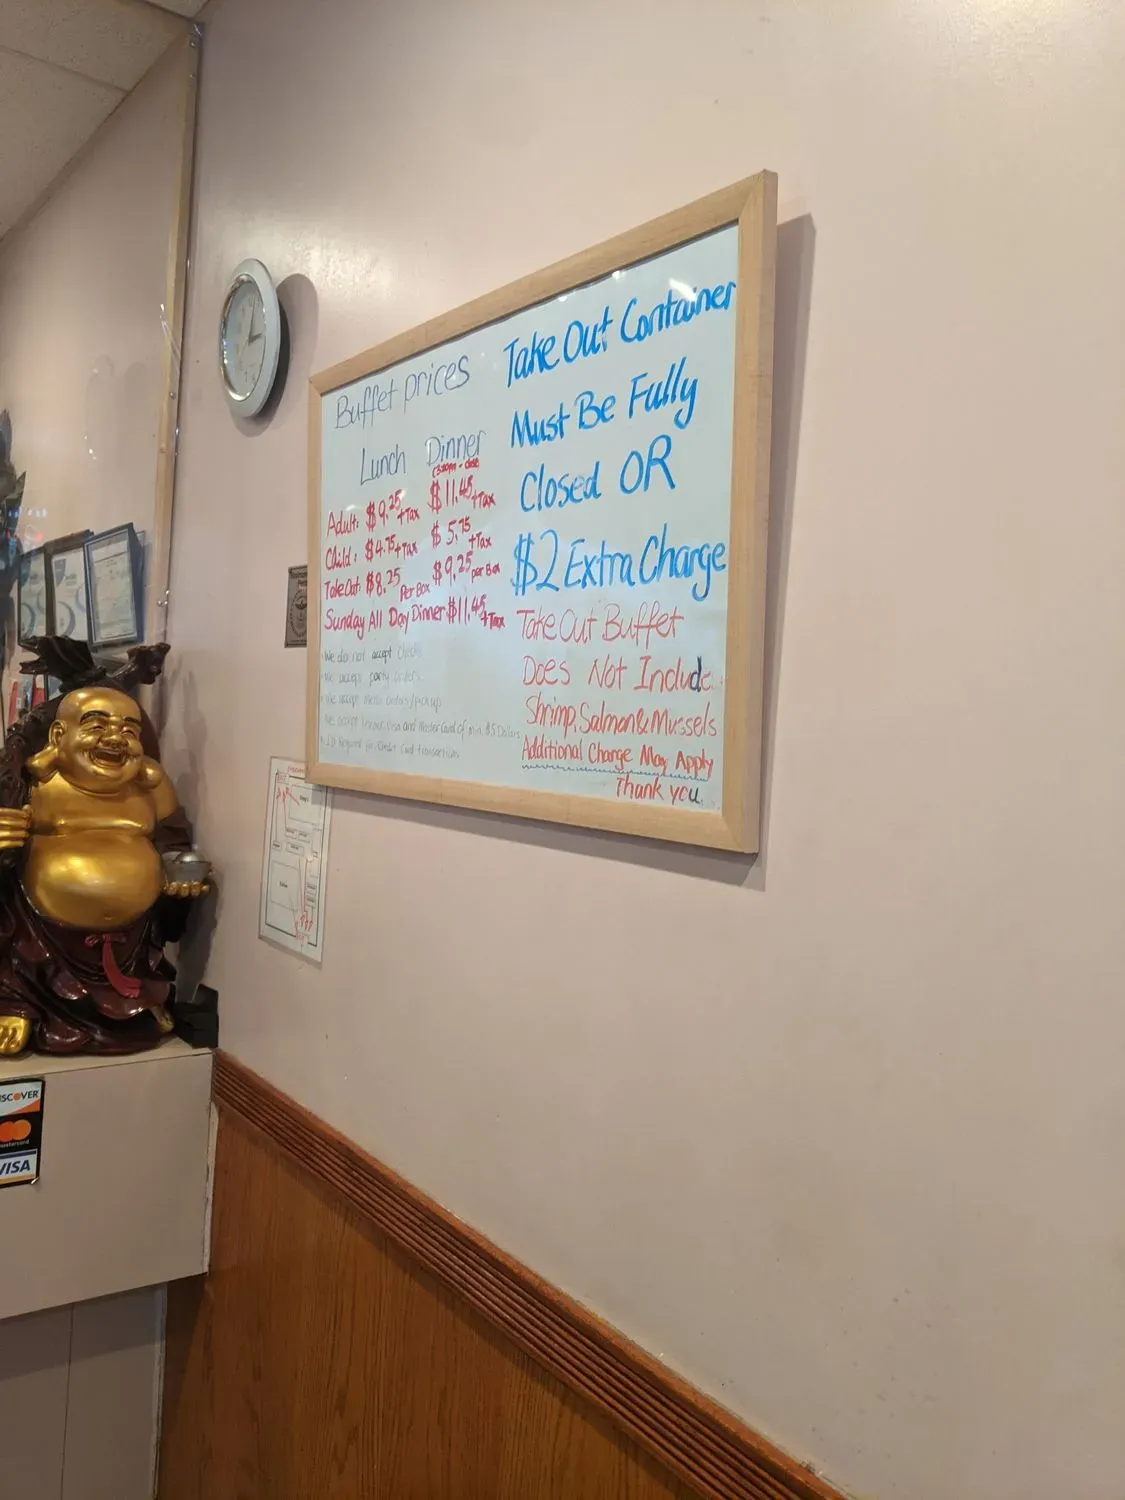 Buffet prices
Lunch Dinner
(3:30pm - close)
Adult: $9.25 +Tax $11.45 +Tax
Child: $4.75 +Tax $5.75 +Tax
TakeOut: $8.25 Per Box $9.25 per Box
Sunday All Day Dinner $11.45 +Tax
We do not accept Checks
We accept party orders
We accept menu orders/pickup
We accept Visa and Master Card of min $5 Dollars
I.D Required for Credit Card transactions
Take Out Container
Must Be Fully
Closed OR
$2 Extra Charge
Take Out Buffet
Does Not Include
Shrimp, Salmon & Mussels
Additional Charge May Apply
Thank you
DISCOVER
mastercard
VISA